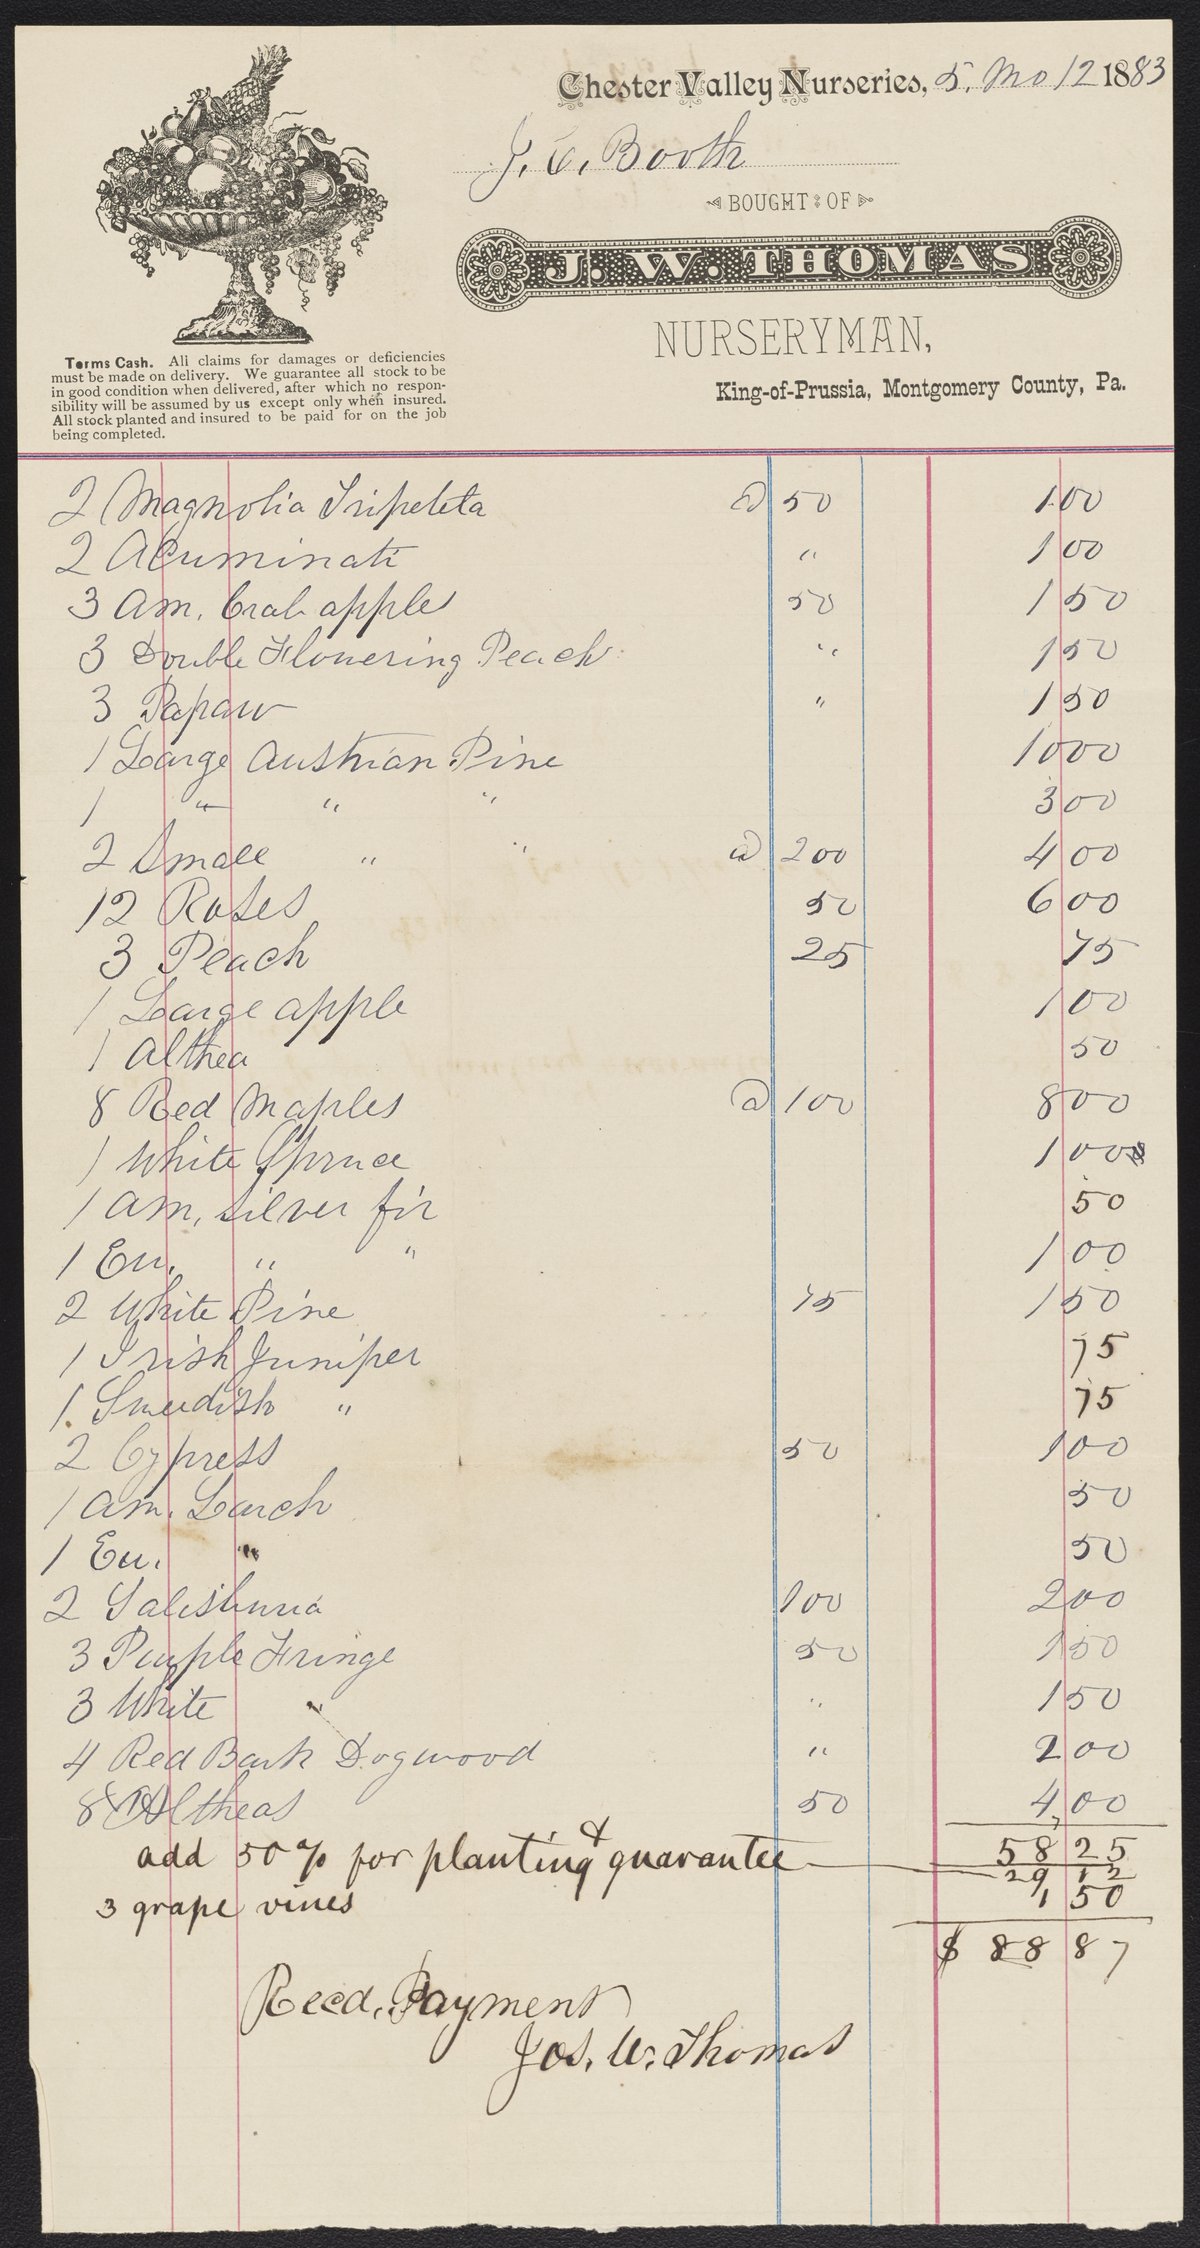 Chester Valley Nurseries, 5. Mo 12 1883
J. C. Booth
BOUGHT OF
J. W. THOMAS
NURSERYMAN,
King-of-Prussia, Montgomery County, Pa.
Terms Cash. All claims for damages or deficiencies
must be made on delivery. We guarantee all stock to be
in good condition when delivered, after which no respon-
sibility will be assumed by us except only when insured.
All stock planted and insured to be paid for on the job
being completed.
2 Magnolia Tripeleta @ 50 1 00
2 Acuminati " 1 00
3 Am. Crab apples 50 1 50
3 Double Flowering Peach " 1 50
3 Papaw " 1 50
1 Large Austrian Pine 10 00
1 " " " 3 00
2 Small " " @ 2 00 4 00
12 Roses 50 6 00
3 Peach 25 75
1 Large apple 1 00
1 Althea 50
8 Red Maples @ 1 00 8 00
1 White Spruce 1 00
1 Am. Silver fir 50
1 Eu. " " 1 00
2 White Pine 75 1 50
1 Irish Juniper 75
1 Swedish " 75
2 Cypress 50 1 00
1 Am. Larch 50
1 Eu. " 50
2 Salisburia 1 00 2 00
3 Purple Fringe 50 1 50
3 White " " 1 50
4 Red Bark Dogwood " 2 00
8 Altheas 50 4,00
58 25
add 50% for planting & guarantee 29 12
3 grape vines 1 50
$ 88 87
Recd. Payment
Jos. W. Thomas